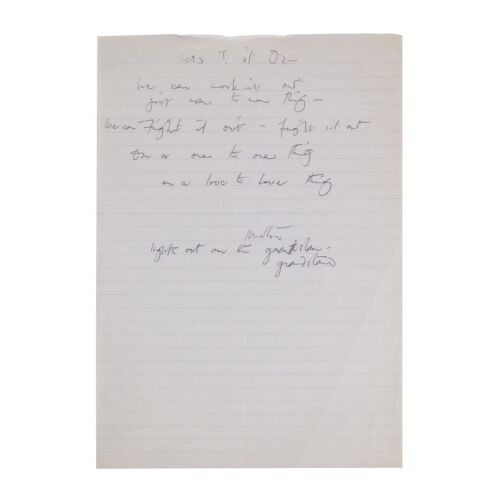 Let's T. it On
We can work it out
just man to man thing
We can Fight it out - fight it out
On a one to one thing
on a love to love thing
lights out on the
grandstand